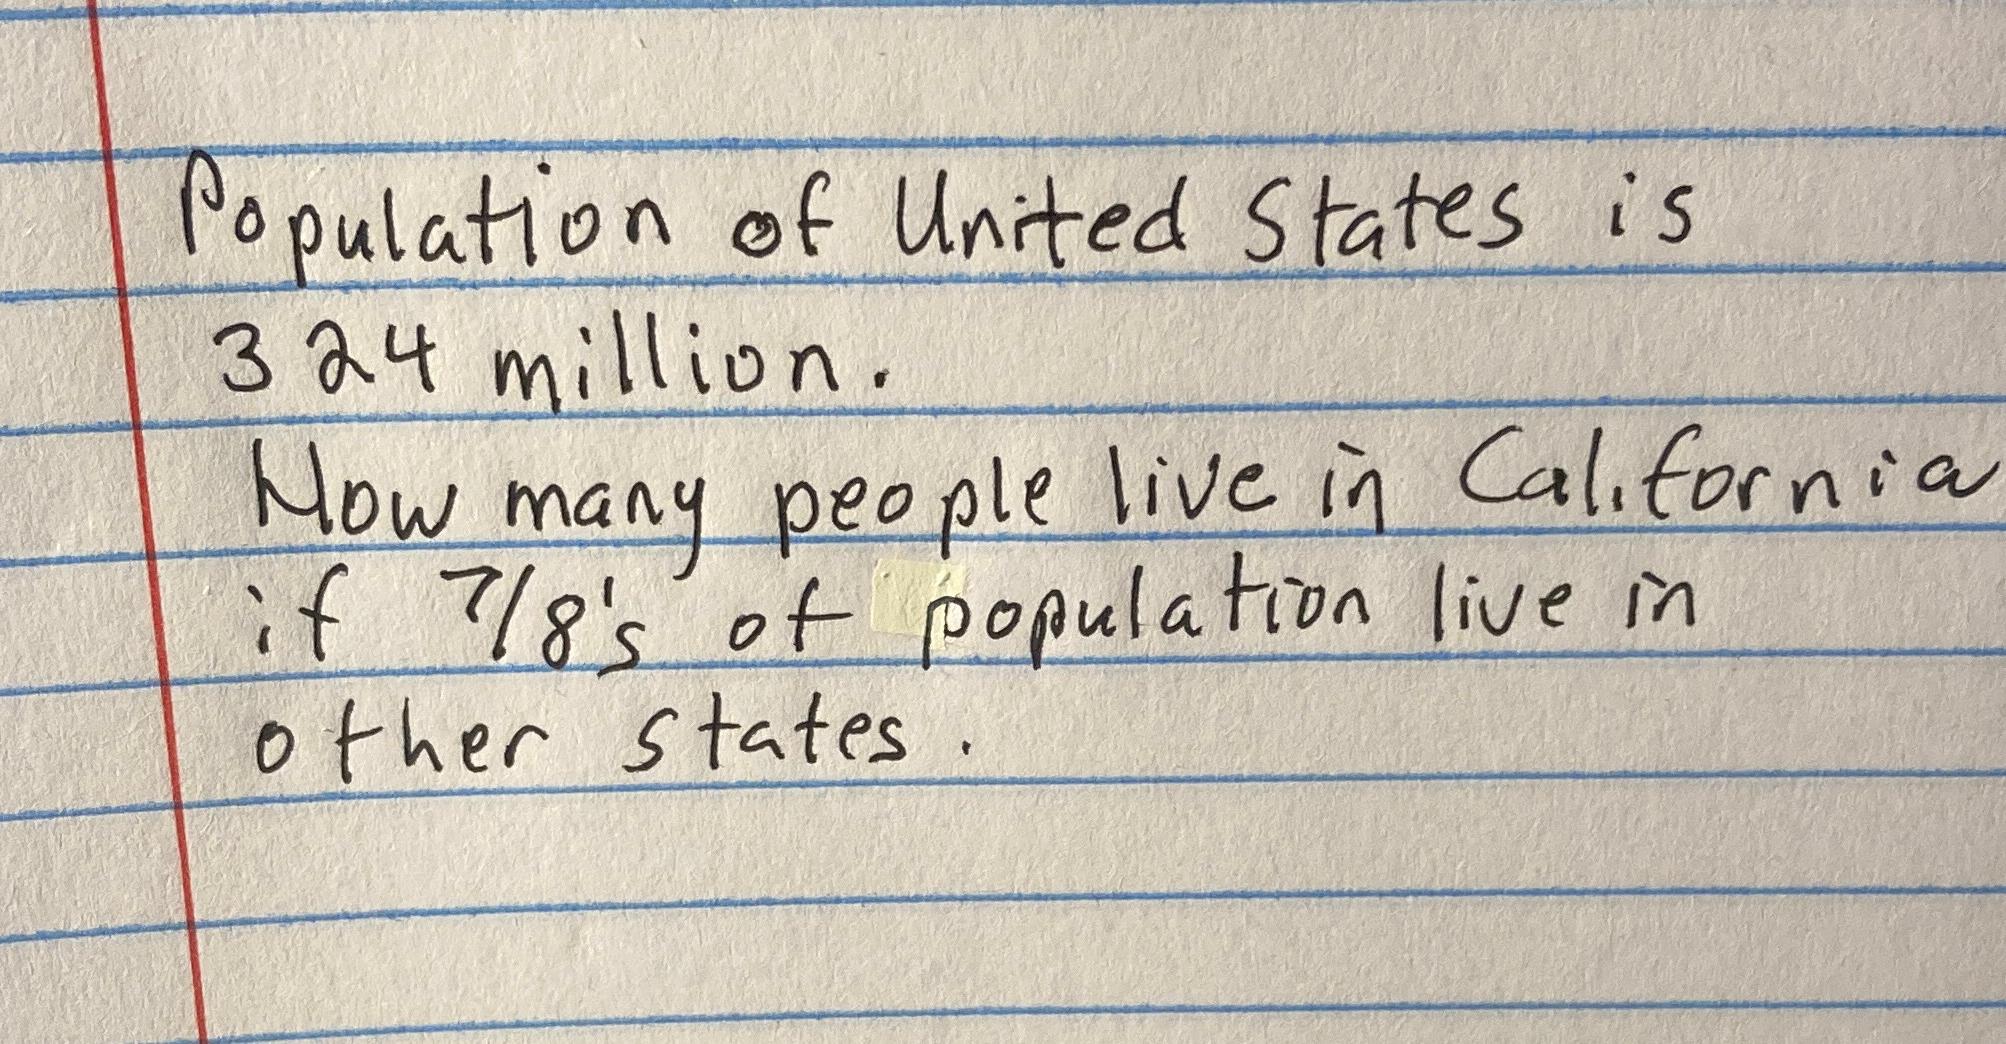 Population of United States is
324 million.
How many people live in California
if 7/8's of population live in
other states.